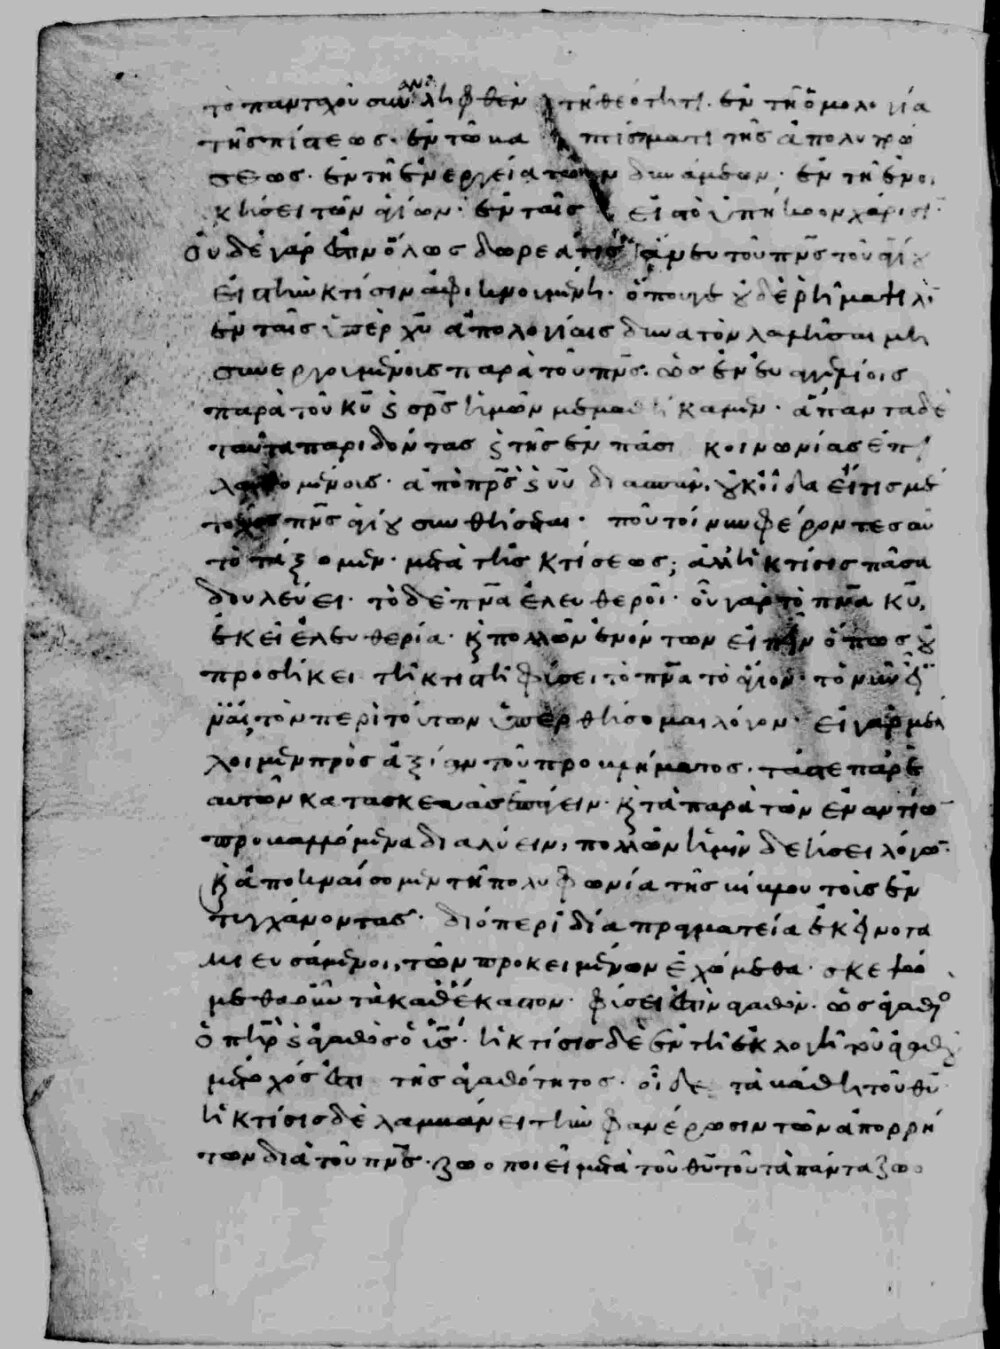 τὸ πανταχοῦ συναναληφθὲν τῆ θεότητι. ἐν τῆ ὁμολογία
τῆς πίστεως. ἐν τῶ βαπτίσματι τῆς ἀπολυτρώ
σεως. ἐν τῆ ἐνεργεία τῶν δυνάμεων. ἐν τῆ ἐνοι
κήσει τῶν ἁγίων. ἐν ταῖς εἰς τὸ ὑπήκοον χάρισι.
οὐδὲ γάρ ἐστιν ὅλως δωρεά τις ἄνευ τοῦ πνς τοῦ ἁγίου
εἰς τὴν κτίσιν ἀφικνουμένη. ὅπουγε οὐδὲ ῥῆμα ψιλὸ
ἐν ταῖς ὑπὲρ χυ ἀπολογίαις δυνατὸν λαλῆσαι μὴ
συνεργουμένοις παρὰ τοῦ πνς. ὡς ἐν εὐαγγελίοις
παρὰ τοῦ κυ καὶ σρς ἡμῶν μεμαθήκαμεν. ἅπαντα δὲ
ταῦτα παριδόντας καὶ τῆς ἐν πᾶσι κοινωνίας ἐπι
λαθομένοις. ἀπὸ πρς καὶ υυ διασπᾶν. οὐκ οἶδα εἴ τις μέ
τοχος πνς ἁγίου συνθήσεται. ποῦ τοίνυν φέροντες αὐ
τὸ τάξομεν. μετὰ τῆς κτίσεως; ἀλλ' ἡ κτίσις πᾶσα
δουλεύει. τὸ δὲ πνα ἐλευθεροῖ. οὗ γὰρ τὸ πνα κυ,
ἐκεῖ ἐλευθερία. καὶ πολλῶν ἐνόντων εἰπεῖν ὅπως οὐ
προσήκει τῆ κτιστῆ φύσει τὸ πνα τὸ ἅγιον. τὸ νῦν εἶ
ναι τὸν περὶ τούτων ὑπερθήσομαι λόγον. εἰ γὰρ μέλ
λοιμεν πρὸς ἀξίαν τοῦ προβλήματος. τάς τε παρ' ἑ
αυτῶν κατασκευὰς ἐπάγειν. καὶ τὰ παρὰ τῶν ἐναντίω
προβαλλόμενα διαλύειν, πολλῶν ἡμῖν δεήσει λόγω.
καὶ ἀποκναίσομεν τῆ πολυφωνία τῆς βίβλου τοῖς ἐν
τυγχάνοντας. διόπερ ἰδία πραγματεία ἐκεῖνο τα
μιευσάμενοι, τῶν προκειμένων ἐχώμεθα. σκεψώ
μεθα οὖν τὰ καθ' ἕκαστον. φύσει ἐστὶν ἀγαθὸν. ὡς ἀγαθὸς
ὁ πηρ καὶ ἀγαθὸς ὁ υς. ἡ κτίσις δὲ ἐν τῆ ἐκλογῆ τοῦ ἀγαθοῦ
μέτοχός ἐστι τῆς ἀγαθότητος. οἶδε τὰ βάθη τοῦ θυ
ἡ κτίσις δὲ λαμβάνει τὴν φανέρωσιν τῶν ἀπορρή
των διὰ τοῦ πνς. ζωοποιεῖ μετὰ τοῦ θυ τοῦ τὰ πάντα ζωο